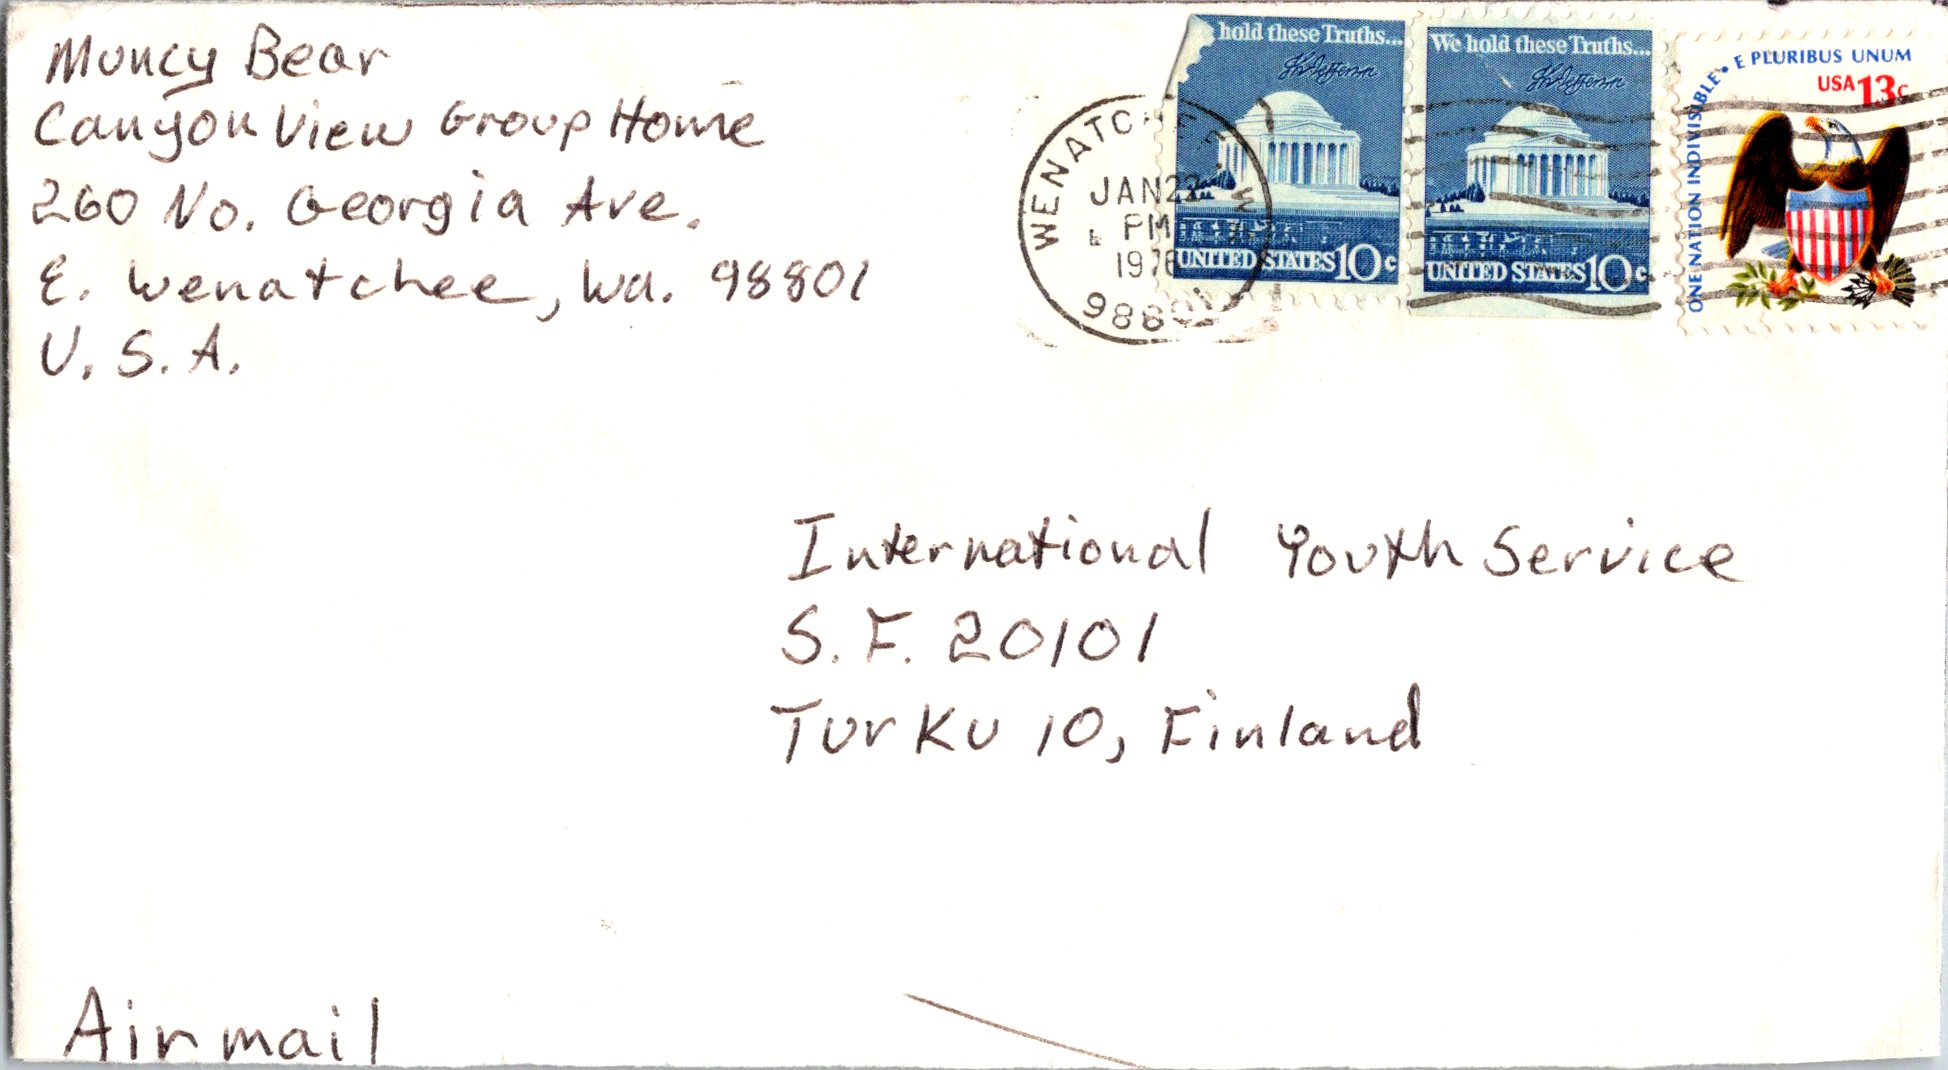 Muncy Bear
Canyon View Group Home
260 No. Georgia Ave.
E. Wenatchee, Wa. 98801
U. S. A.
WENATCHEE, W
JAN 22
PM
197
9880
hold these Truths...
Th Jefferson
UNITED STATES 10c
We hold these Truths...
Th Jefferson
UNITED STATES 10c
ONE NATION INDIVISIBLE • E PLURIBUS UNUM
USA 13c
International Youth Service
S. F. 20101
Turku 10, Finland
Airmail